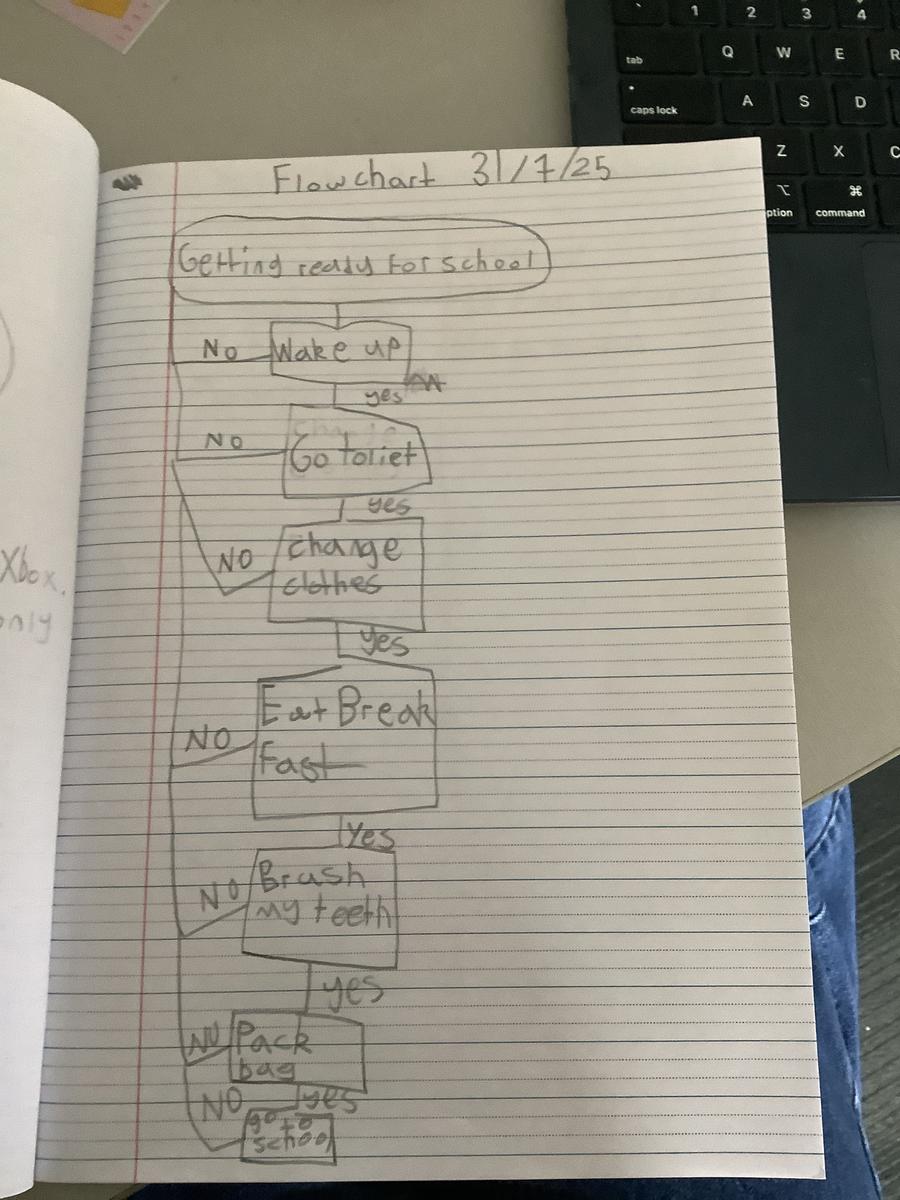 ` 1 2 3 4
tab Q W E R
caps lock A S D
Z X C
⌥ ⌘
ption command
Flowchart 31/7/25
Getting ready for school
No Wake up
yes
No Go toliet
yes
NO change
clothes
yes
Eat Break
NO Fast
Yes
NO Brush
my teeth
yes
NO Pack
bag
NO yes
go to
school
Xbox.
only